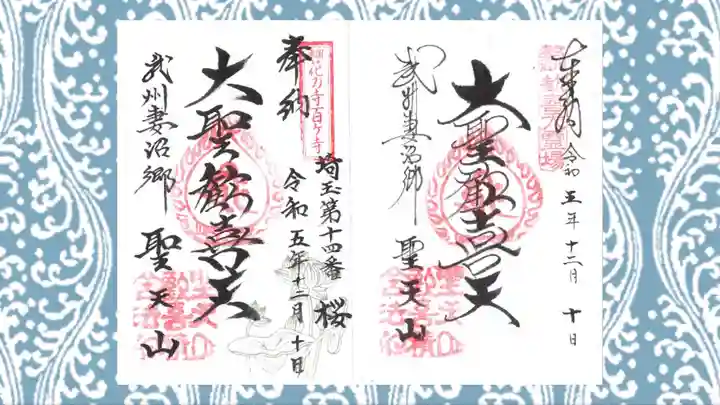 奉納
埼玉第十四番 桜
令和五年十二月十日
大聖歓喜天
武州妻沼郷
聖天山
奉納
令和五年十二月十日
大聖歓喜天
武州妻沼郷
聖天山